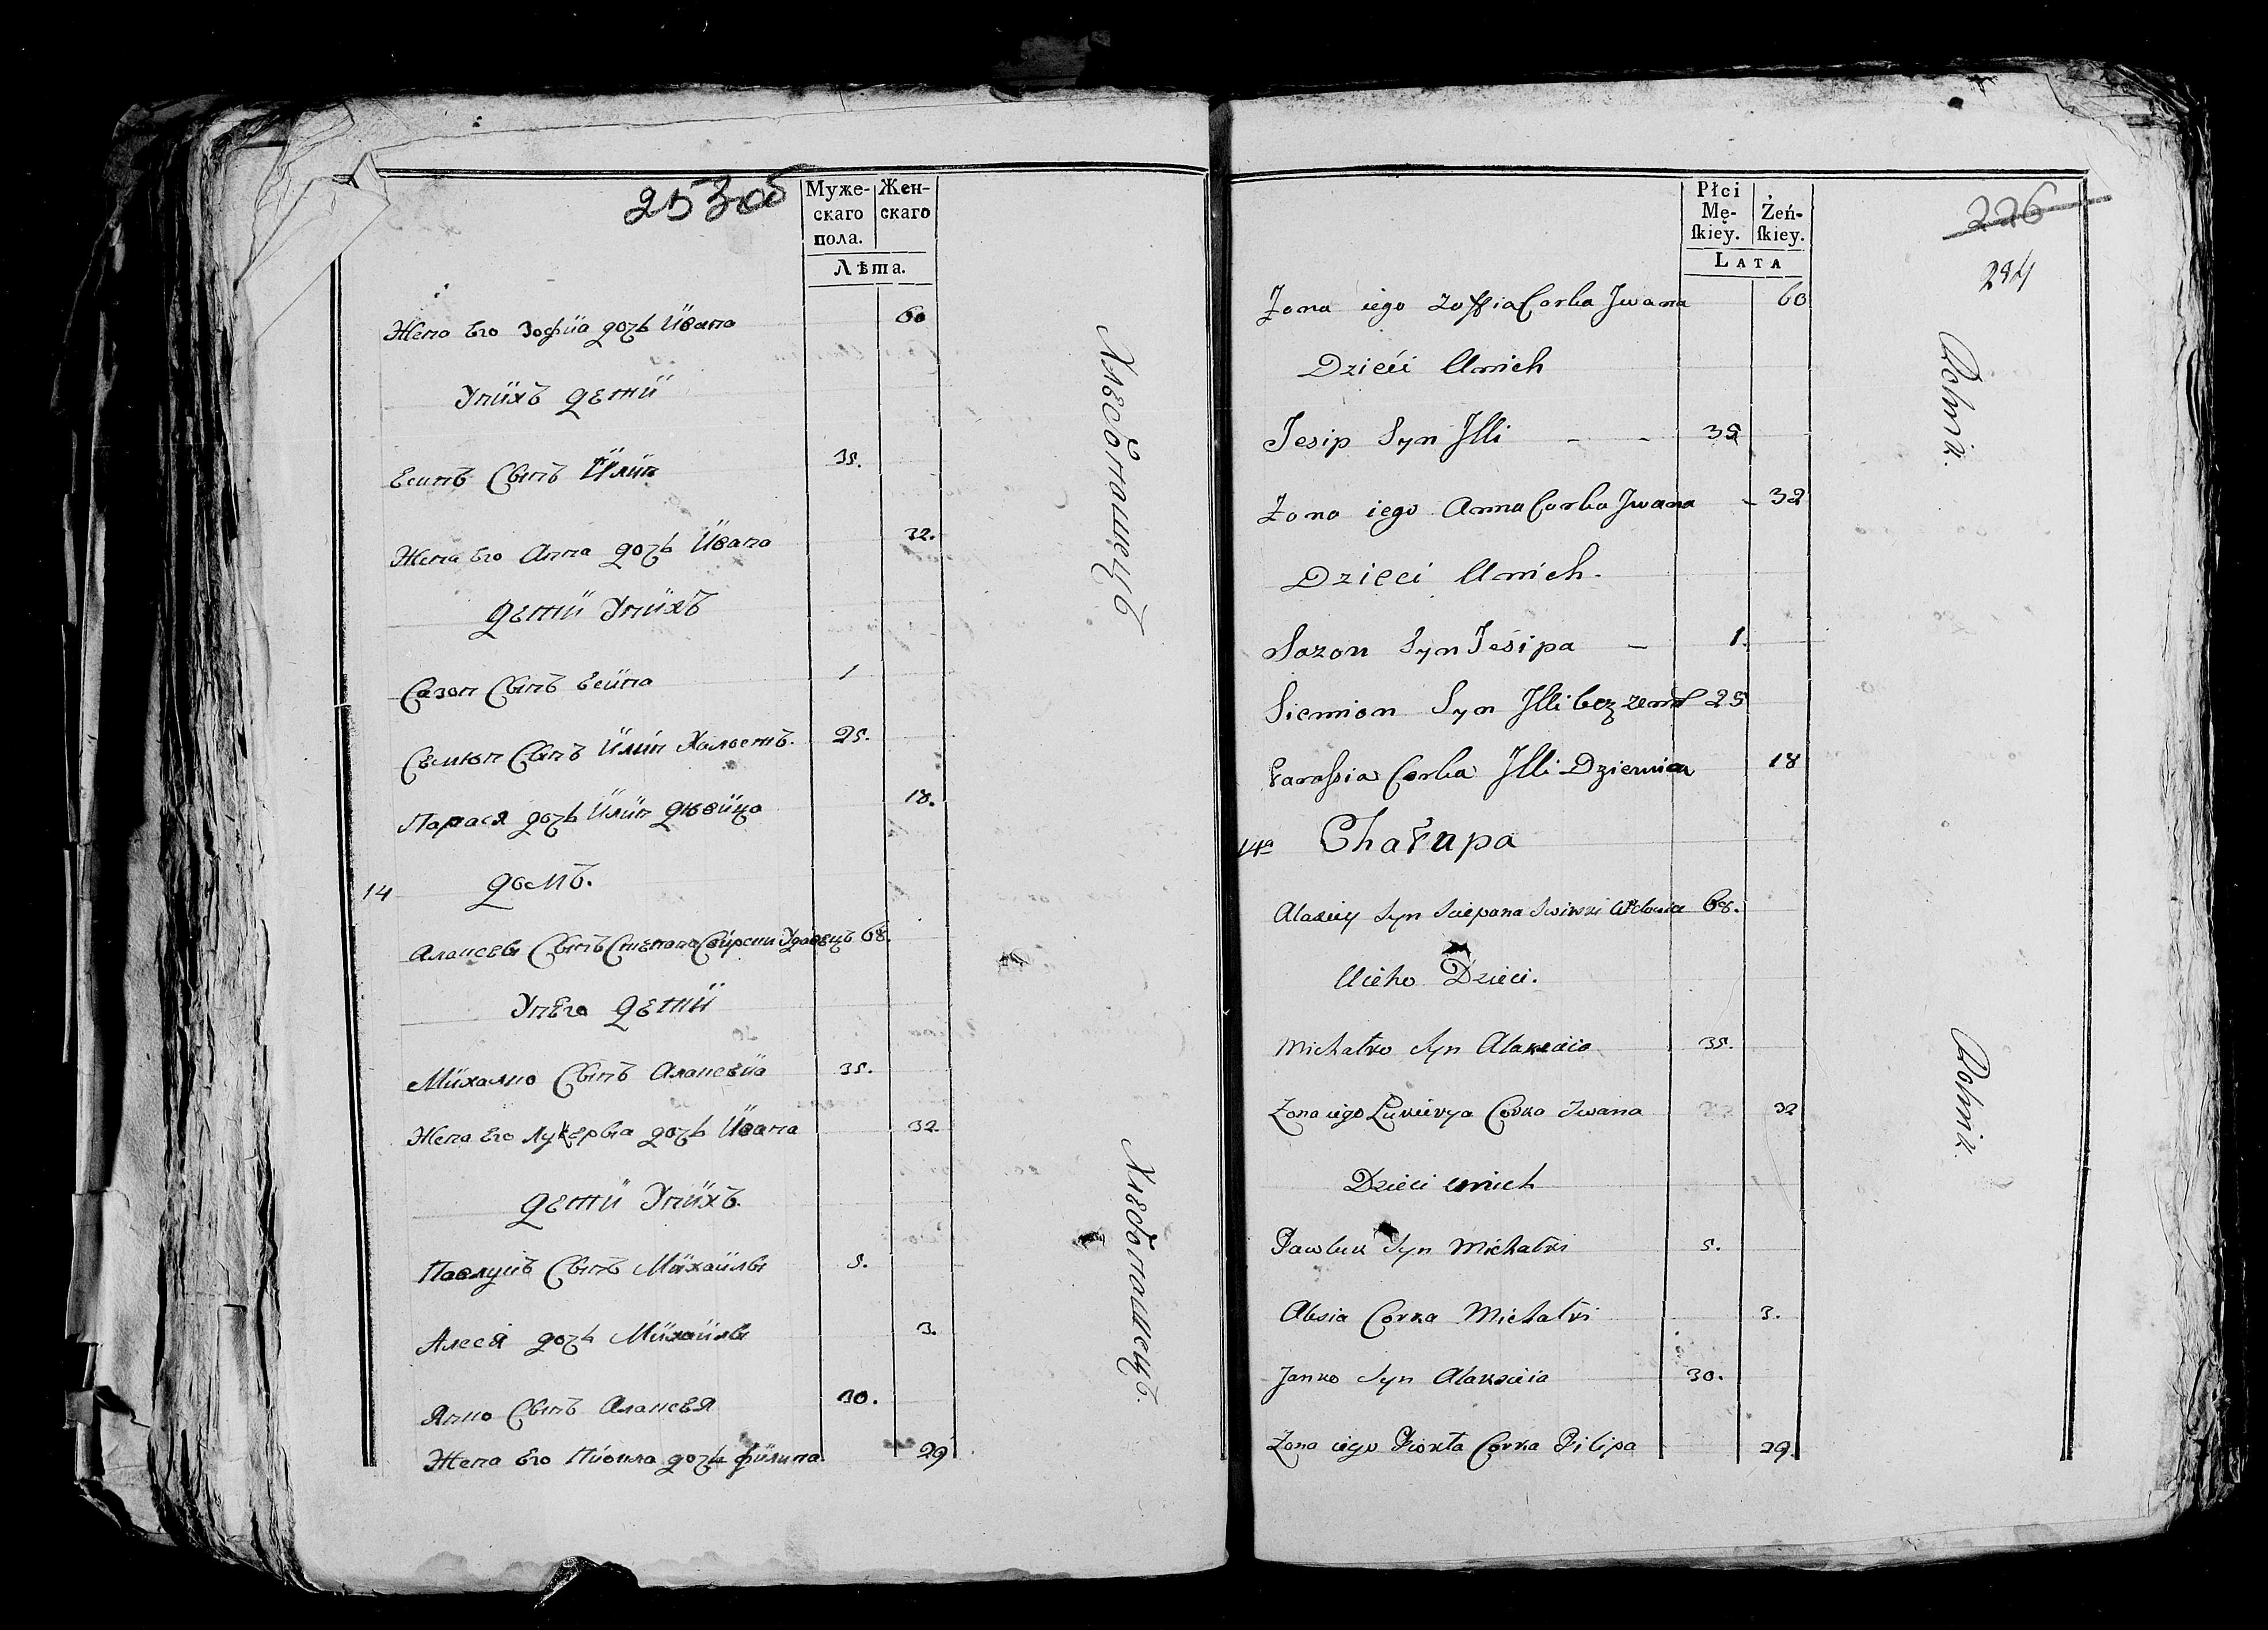 253об
Муже- Жен-
скаго скаго
пола.
Лѣта.
Жена Его Зофiïа дочь Ивана 60
Унихъ дети
Есипъ Сынъ Илiи 35.
Жена Его Анна дочь Ивана 32.
дети Унихъ
Сазон Сынъ Есипа 1
Семион Сынъ Илiи Холостъ. 25.
Парася дочь Илiи дювица 18.
14 домъ.
Алаксѣы Сынъ Степана Свирски Удовецъ 68.
Унего дети
Михалко Сынъ Алаксеиа 35.
Жена Его Лукерыа дочь Ивана 32
дети Унихъ.
Павлукъ Сынъ Михаилы 5.
Алеся дочь Михаилы 3.
Янко Сынъ Алаксея 30.
Жена Его дочь филипа 29
Хлебопашецъ
Хлебопашецъ.
Płci
Mę- Żeń-
skiey. skiey.
LATA
226
254
Żona iego Zoffia Corka Jwana 60
Dzieci Unich
Jesip Syn Jlli - - 35
Żona iego Anna Corka Jwana - 32
Dzieci Unich.
Sazon Syn Jesipa - 1.
Siemion Syn Jlli bez 25
Parassia Corka Jlli Dziewica 18
14a Chałupa
Alaxiey Syn Sciepana Swirski Wdowiec 68.
Uieho Dzieci.
Michałko Syn Alaxieia 35.
Żona iego Lukierya Corka Iwana 32
Dzieci unich
Pawluk Syn Michałki 5.
Alesia Corka Michałki 3.
Janko Syn Alaxieia 30.
Żona iego Corka Filipa 29.
Rolnik.
Rolnik.